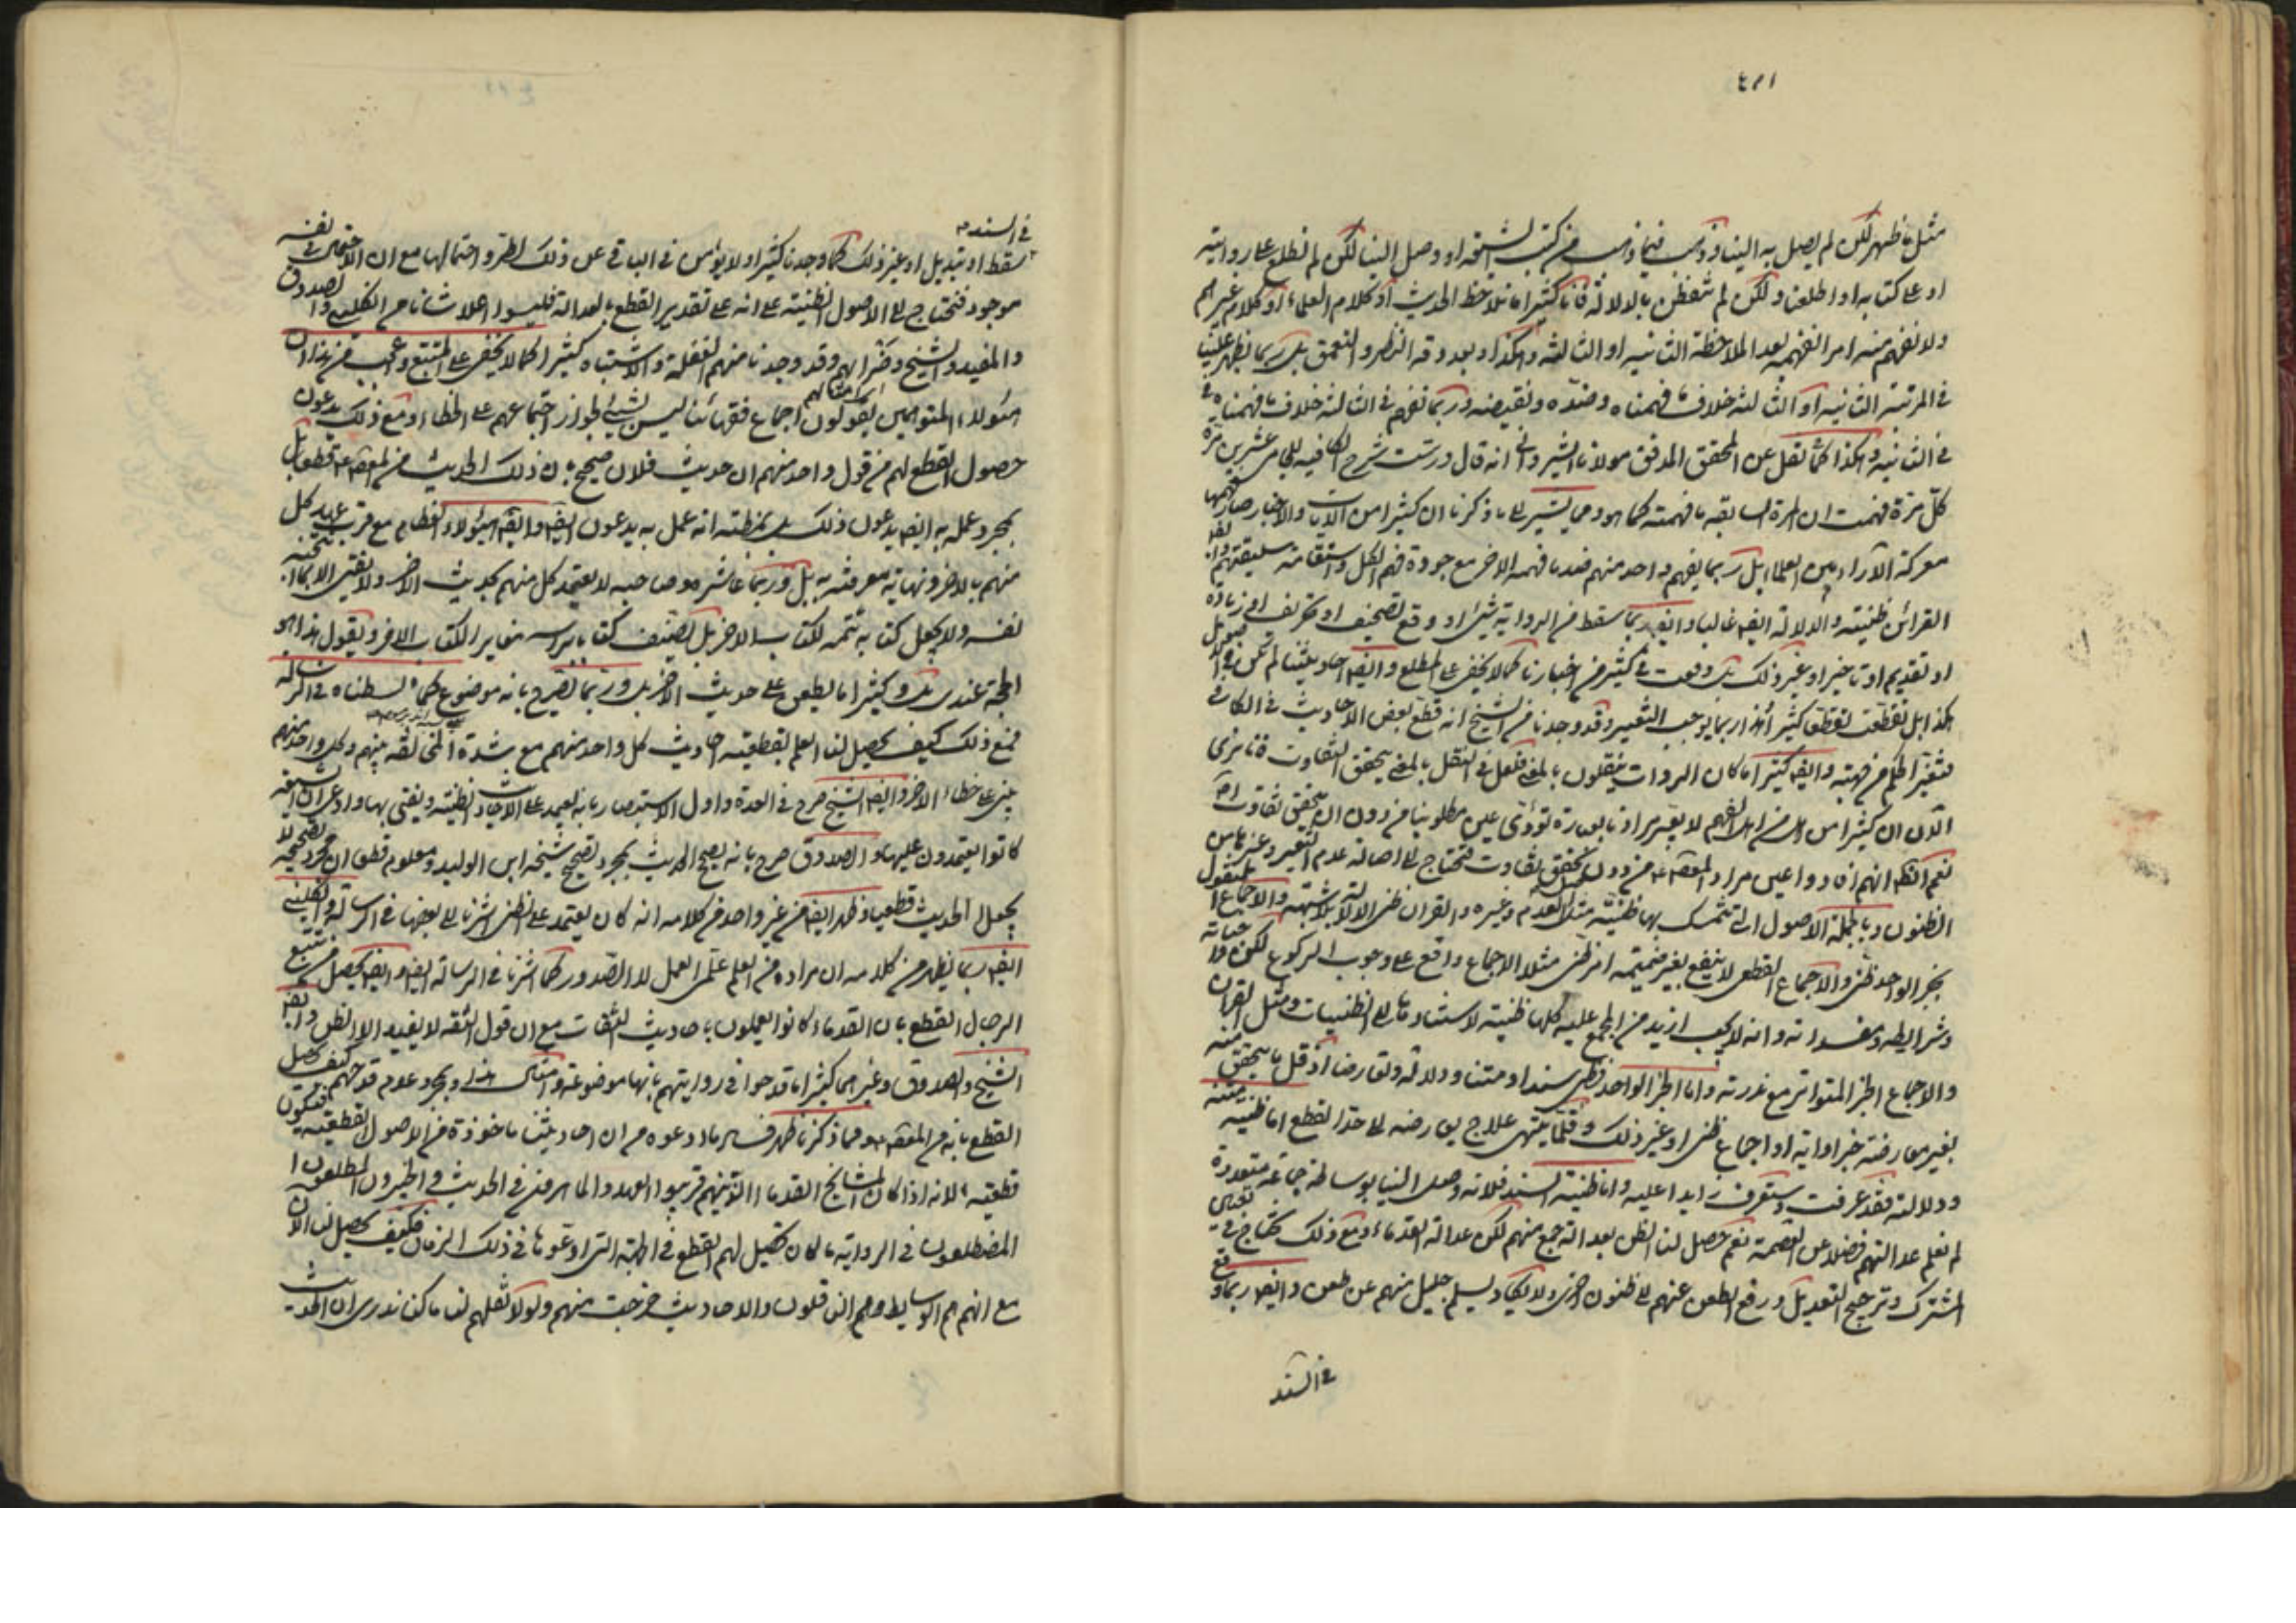 ٤٣١
مثل ما ظهر لكن لم يصل به الينا وذهب فيما ذهب من كتب الشيعة او وصل الينا لكن لم نطلع على روايته
او على كتابه او اطلعنا ولكن لم نتفطن بالدلالة فانا كثيرا ما نلاحظ الحديث او كلام العلماء او كلام غيرهم
ولا نفهم منه امرا نفهمه بعد الملاحظة الثانية او الثالثة وهكذا وبعد دقة النظر والتعمق بل ربما يظهر علينا
في المرتبة الثانية او الثالثة خلاف ما فهمناه وضده ونقيضه وربما نفهم في الثالثة خلاف ما فهمناه في
الثانية وهكذا كما نقل عن المحقق المدقق مولانا الشيرواني انه قال درست شرح الكافية للجامي عشرين مرة
كل مرة فهمت ان المرة السابقة ما فهمته كما هو ومما يشير الى ما ذكرنا ان كثيرا من الآيات والاخبار صار فهمها
معركة الآراء بين العلماء بل ربما يفهم واحد منهم ضد ما فهمه الآخر مع جودة فهم الكل واستقامة سليقتهم وايضا
القرائن ظنية والدلالة ايضا غالبا وايضا ربما سقط من الرواية شيء او وقع تصحيف او تحريف او زيادة
او تقديم او تاخير او غير ذلك بل وقعت في كثير من اخبارنا كما لا يخفى على المطلع وايضا احاديثنا لم تكن في الاصول
هكذا بل تقطعت تقطعا كثيرا وهذا ربما يوجب التغيير وقد وجدنا من الشيخ انه قطع بعض الاحاديث في الكافي
فتغير الحكم من جهته وايضا كثيرا ما كان الرواة ينقلون بالمعنى فلعل في النقل بالمعنى يتحقق التفاوت فانا نرى
الآن ان كثيرا من اهل الفهم لا يعبر مرادنا بعبارة تؤدي عين مطلوبنا من دون ان يتحقق تفاوت
نعم الظاهر انهم ادوا عين مراد المعصوم ع من دون تحقق تفاوت فنحتاج الى اصالة عدم التغير وغيرها من
الظنون وبالجملة الاصول التي نتمسك بها ظنية مثل العدم وغيره والقرآن ظني الدلالة بلا شبهة والاجماع المنقول
بخبر الواحد ظني والاجماع القطعي لا ينفع بغير ضميمة امر ظني مثلا الاجماع واقع على وجوب الركوع لكن واجباته
وشرايطه ومفسداته وانه لا يجب ازيد من المجمع عليه كلها ظنية لاستنادها الى الظنيات ومثل القرآن
والاجماع الخبر المتواتر مع ندرته واما الخبر الواحد فظني سندا ومتنا ودلالة وتعارضا اذ قل ما يتحقق منه
بغير معارضة خبر او آية او اجماع ظني او غير ذلك وقلما ينتهي علاج تعارضه الى حد القطع اما ظنية متنه
ودلالته فقد عرفت وستعرف زايدا عليه واما ظنية السند فلانه وصل الينا بوساطة جماعة متعددة
لم نعلم عدالتهم فضلا عن العصمة نعم حصل لنا الظن بعدالة جمع منهم لكن عدالة القدماء ومع ذلك نحتاج في تعيين
المشترك وترجيح التعديل ورفع الطعن عنهم الى ظنون اخرى ولا يكاد يسلم جليل منهم عن طعن وايضا ربما وقع
في السند
في السند
سقط او تبديل او غير ذلك كما وجدنا كثيرا ولا يؤمن في الباقي عن ذلك الطرو احتمالها مع ان الاحتمال في نفسه
موجود فنحتاج الى الاصول الظنية على انه على تقدير القطع بالعدالة فليسوا اعلا شانا من الكليني والصدوق
والمفيد والشيخ ونظرائهم وقد وجدنا منهم الغفلة والاشتباه كثيرا كما لا يخفى على المتتبع وعجب من هذا ان
هؤلاء المتوهمين يقولون اجماع فقهائنا ليس بشيء لجواز اجتماعهم على الخطاء ومع ذلك يدعون
حصول القطع لهم من قول واحد منهم ان حديث فلان صحيح بان ذلك الحديث من المعصوم ع قطعا بل
بمجرد عمله به ايضا يدعون ذلك بل بمظنة انه عمل به يدعون ايضا وايضا هؤلاء العظام مع قرب عهد كل
منهم بالآخر ونهاية معرفته به بل وربما عاشره وصاحبه لا يعتمد كل منهم بحديث الآخر ولا يفتي الا بما انتخبه
لنفسه ولا يجعل كتابه تتمة لكتاب الآخر بل يصنف كتابا براسه مغاير الكتاب الآخر ويقول هذا هو
الحجة عندي بل وكثيرا ما يطعن على حديث الآخر بل وربما يصرح بانه موضوع كما بسطناه في الرسالة
فمع ذلك كيف يحصل لنا العلم بقطعية احاديث كل واحد منهم مع شدة المخالفة بينهم وكل واحد منهم
يبني على خطاء الآخر وايضا الشيخ صرح في العدة واول الاستبصار بانه يعمد على الاحاديث الظنية ويفتي بها وادعى ان الشيعة
كانوا يعتمدون عليها والصدوق صرح بانه يصحح الحديث بمجرد تصحيح شيخه ابن الوليد ومعلوم قطعا ان مجرد تصحيحه لا
يجعل الحديث قطعيا وظهر ايضا من غير واحد من كلامه انه كان يعتمد على الظن اشرنا الى بعضها في الرسالة والكليني
ايضا ربما يظهر من كلامه ان مراده من العلم علمي العمل لا الصدور كما اشرنا في الرسالة ايضا وايضا يحصل من تتبع
الرجال القطع بان القدماء كانوا يعملون باحاديث الثقات مع ان قول الثقة لا يفيد الا الظن وايضا
الشيخ والصدوق وغيرهما كثيرا ما قدحوا في روايتهم بانها موضوعة وامثال هذا وبمجرد عدم قدحهم كيف يحصل
القطع بانه من المعصوم ع ومما ذكرنا ظهر فساد ما ادعوه من ان احاديثنا ماخوذة من الاصول القطعية فيكون
قطعية لانه اذا كان المشايخ القدماء الذينهم قريبوا العهد والماهرون في الحديث والخبيرون المطلعون
المضطلعون في الرواية ما كان يحصل لهم القطع في الجهة التي ادعوها في ذلك الزمان فكيف يحصل لنا الآن
مع انهم هم الوسايط وهم الناقلون والاحاديث خرجت منهم ولولا نقلهم لنا ما كنا ندري ان الحديث